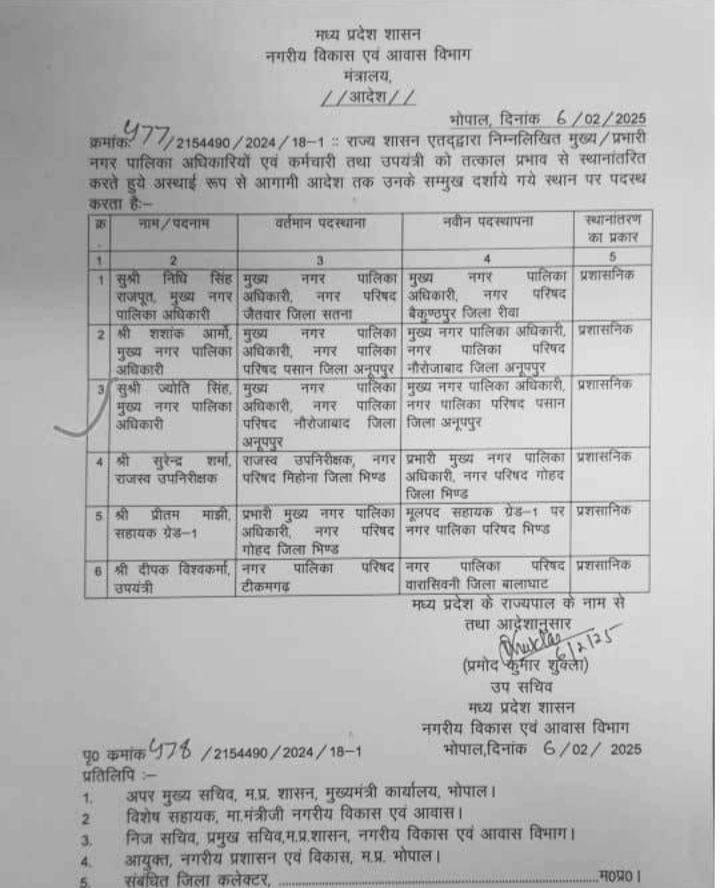 मध्य प्रदेश शासन
नगरीय विकास एवं आवास विभाग
मंत्रालय,
//आदेश//
भोपाल, दिनांक 6/02/2025
क्रमांक: 477/2154490/2024/18-1 :: राज्य शासन एतद्द्वारा निम्नलिखित मुख्य/प्रभारी
नगर पालिका अधिकारियों एवं कर्मचारी तथा उपयंत्री को तत्काल प्रभाव से स्थानांतरित
करते हुये अस्थाई रूप से आगामी आदेश तक उनके सम्मुख दर्शाये गये स्थान पर पदस्थ
करता है:—
क्र. नाम/पदनाम वर्तमान पदस्थाना नवीन पदस्थापना स्थानांतरण
का प्रकार
1 2 3 4 5
1 सुश्री निधि सिंह मुख्य नगर पालिका मुख्य नगर पालिका प्रशासनिक
राजपूत, मुख्य नगर अधिकारी, नगर परिषद अधिकारी, नगर परिषद
पालिका अधिकारी जैतवार जिला सतना बैकुण्ठपुर जिला रीवा
2 श्री शशांक आर्मो, मुख्य नगर पालिका मुख्य नगर पालिका अधिकारी, प्रशासनिक
मुख्य नगर पालिका अधिकारी, नगर पालिका नगर पालिका परिषद
अधिकारी परिषद पसान जिला अनूपपुर नौरोजाबाद जिला अनूपपुर
3 सुश्री ज्योति सिंह, मुख्य नगर पालिका मुख्य नगर पालिका अधिकारी, प्रशासनिक
मुख्य नगर पालिका अधिकारी, नगर पालिका नगर पालिका परिषद पसान
अधिकारी परिषद नौरोजाबाद जिला जिला अनूपपुर
अनूपपुर
4 श्री सुरेन्द्र शर्मा, राजस्व उपनिरीक्षक, नगर प्रभारी मुख्य नगर पालिका प्रशासनिक
राजस्व उपनिरीक्षक परिषद मिहोना जिला भिण्ड अधिकारी, नगर परिषद गोहद
जिला भिण्ड
5 श्री प्रीतम माझी, प्रभारी मुख्य नगर पालिका मूलपद सहायक ग्रेड-1 पर प्रशासनिक
सहायक ग्रेड-1 अधिकारी, नगर परिषद नगर पालिका परिषद भिण्ड
गोहद जिला भिण्ड
6 श्री दीपक विश्वकर्मा, नगर पालिका परिषद नगर पालिका परिषद प्रशसानिक
उपयंत्री टीकमगढ़ वारासिवनी जिला बालाघाट
मध्य प्रदेश के राज्यपाल के नाम से
तथा आदेशानुसार
6/2/25
(प्रमोद कुमार शुक्ला)
उप सचिव
मध्य प्रदेश शासन
नगरीय विकास एवं आवास विभाग
पृ0 कमांक 478 /2154490/2024/18-1 भोपाल,दिनांक 6/02/ 2025
प्रतिलिपि :—
1. अपर मुख्य सचिव, म.प्र. शासन, मुख्यमंत्री कार्यालय, भोपाल।
2 विशेष सहायक, मा.मंत्रीजी नगरीय विकास एवं आवास।
3. निज सचिव, प्रमुख सचिव,म.प्र.शासन, नगरीय विकास एवं आवास विभाग।
4. आयुक्त, नगरीय प्रशासन एवं विकास, म.प्र. भोपाल।
5. संबंधित जिला कलेक्टर, ............................................................म0प्र0।